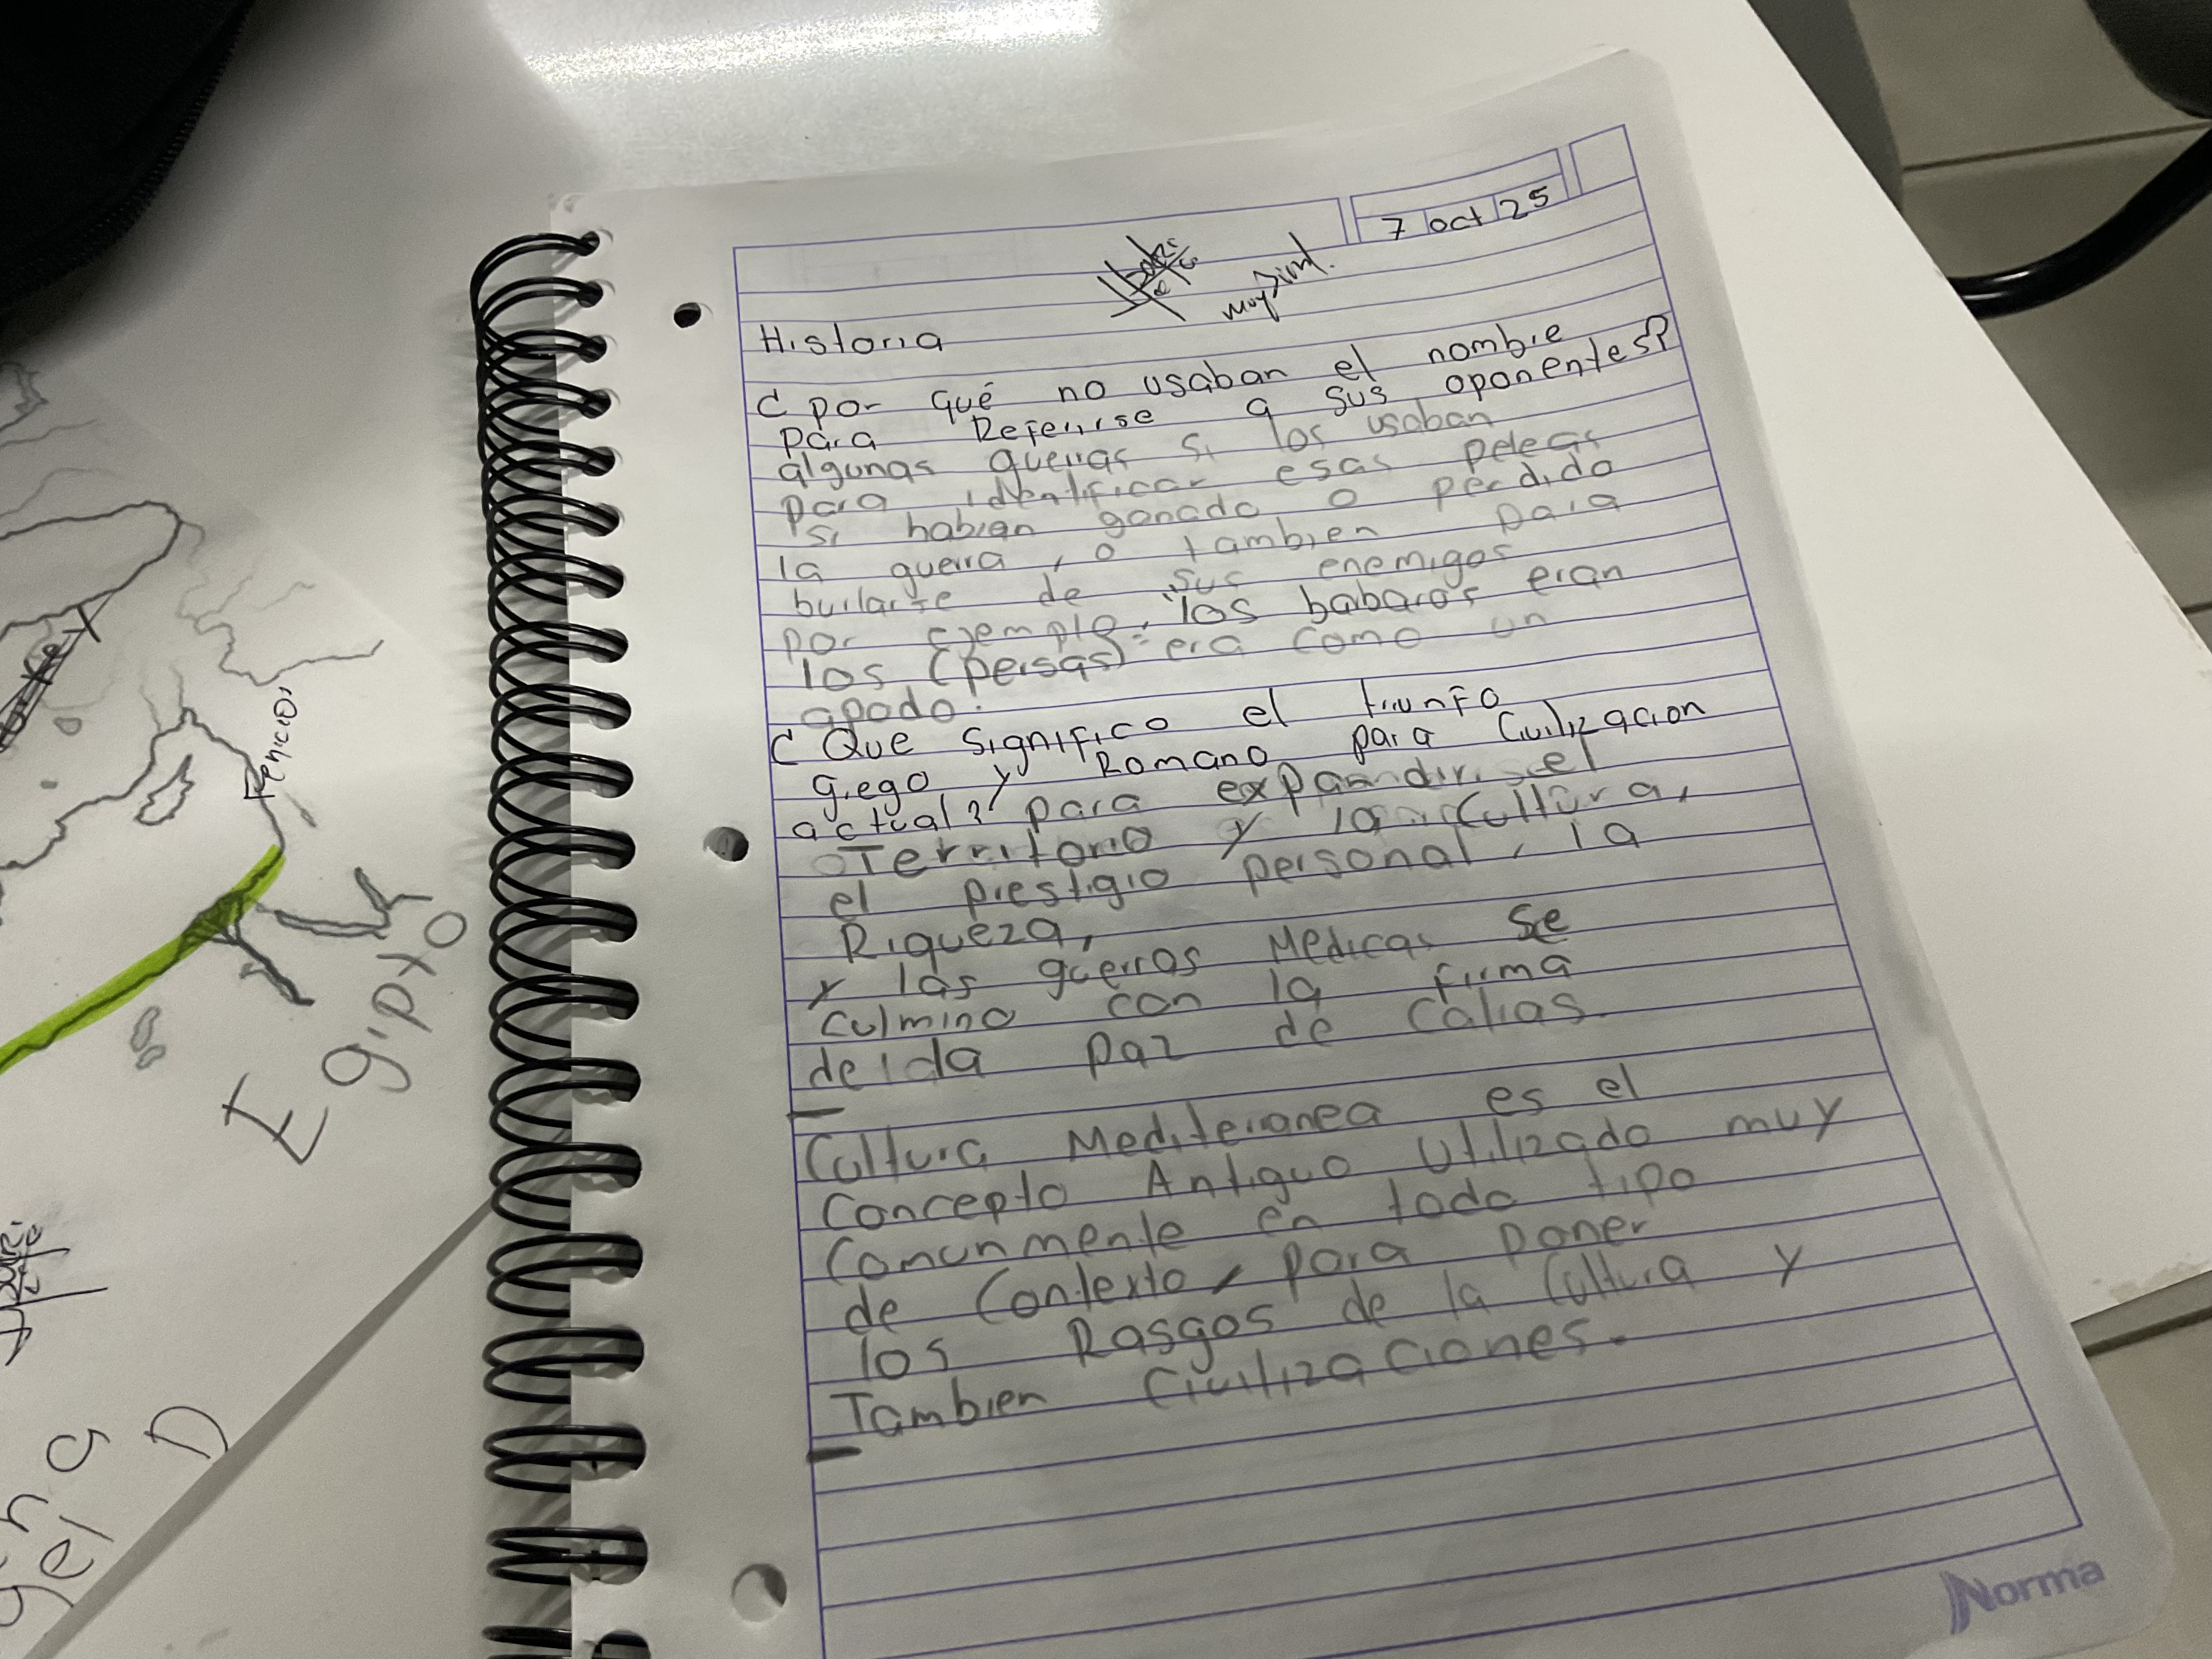 7 oct 25
Historia
¿ por qué no usaban el nombre
para Referirse a sus oponentes?
algunas guerras si los usaban
para identificar esas peleas
si habian ganado o perdido
la guerra, o tambien para
burlarse de sus enemigos
por ejemplo, "los babaros eran
los (persas)" era como un
apodo.
¿ Que significo el triunfo
griego y Romano para Civilizacion
actual? para expandirse el
Territorio y la Cultura,
el prestigio personal, la
Riqueza,
y las guerras Medicas se
culmino con la firma
de la paz de Calias.
Cultura Mediterranea es el
Concepto Antiguo Utilizado muy
Comunmente en todo tipo
de Contexto, para poner
los Rasgos de la Cultura y
Tambien Civilizaciones.
Norma
Fenicios
Egipto